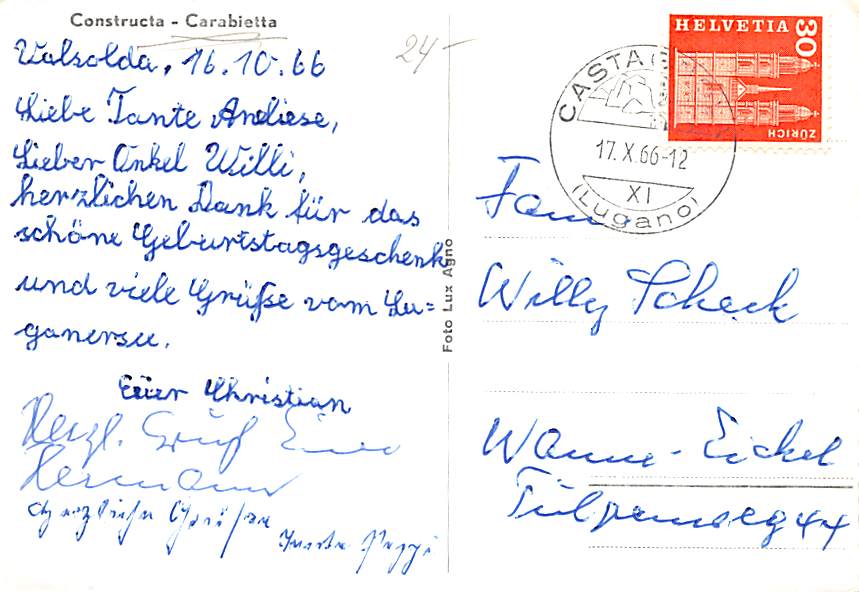 Constructa - Carabietta
24-
Valsolda, 16.10.66
Liebe Tante Aneliese,
Lieber Onkel Willi,
herzlichen Dank für das
schöne Geburtstagsgeschenk
und viele Grüße vom Lu=
ganersee.
Euer Christian
Herzl. Gruß Euer
Hermann
Herzliche Grüße
Foto Lux Agno
HELVETIA 30
ZÜRICH
CASTAG
17.X.66-12
XI
(Lugano)
Fam.
Willy Scheck
Wanne-Eickel
Tulpenweg 44